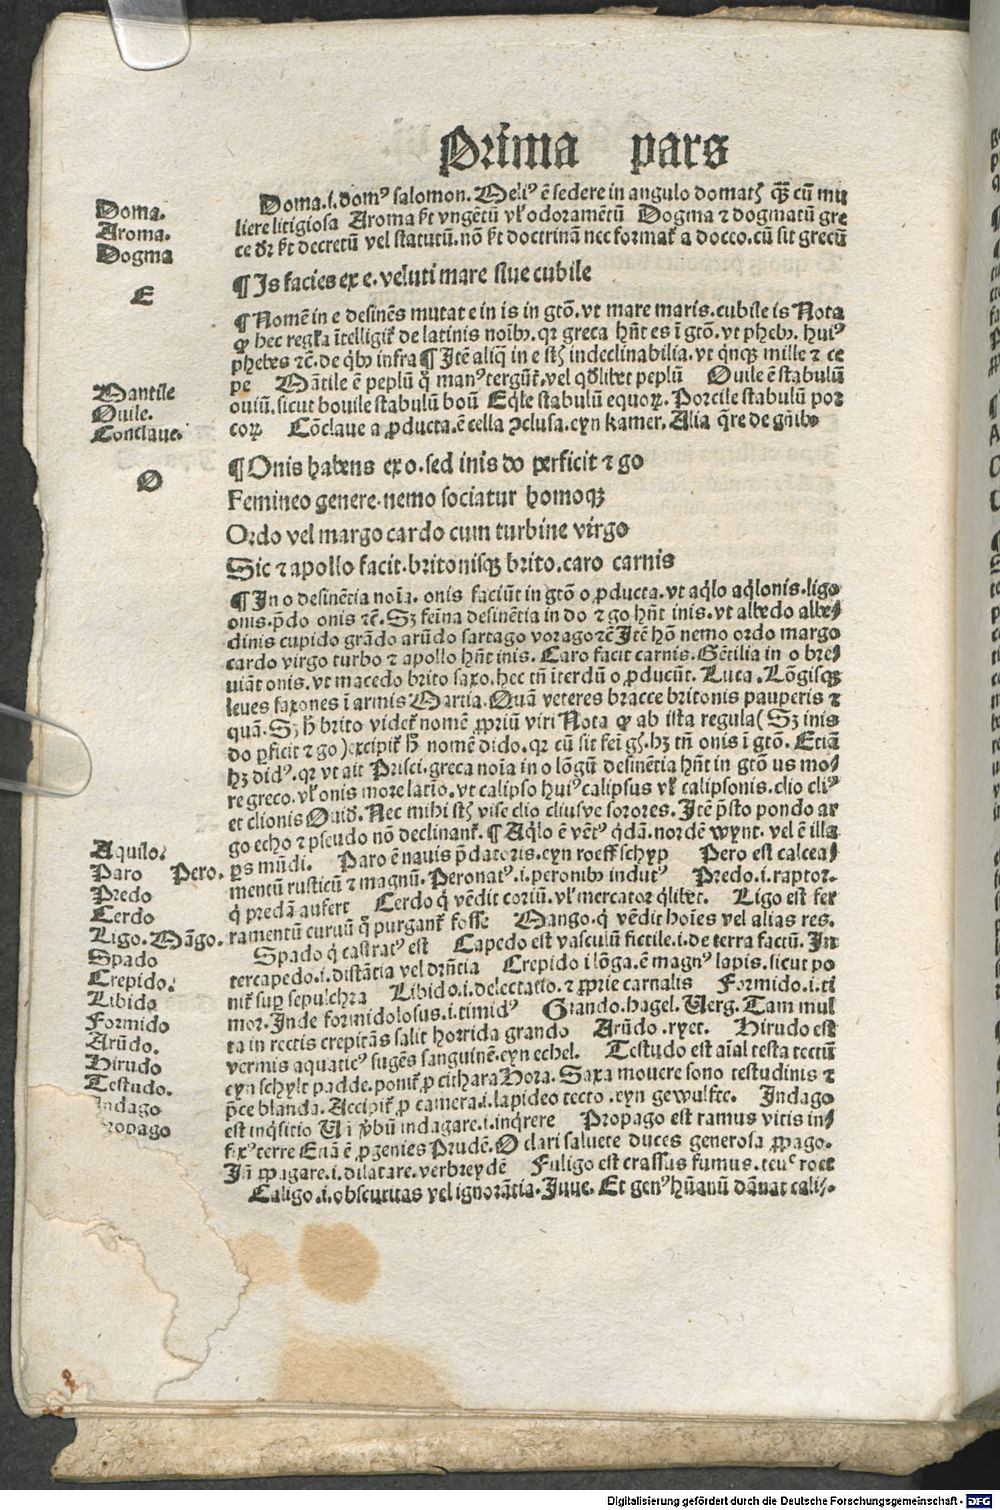 Prima pars
Doma.
Aroma.
Dogma
Doma.i.domꝰ salomon. Meliꝰ ē sedere in angulo domatꝭ qꝫ cū mu
liere litigiosa Aroma ẜt vngētū vl odoramētū Dogma ⁊ dogmatū gre
ce dr̄ ẜt decretū vel statutū.nō ẜt doctrinā nec format̄ a docco.cū sit grecū
E
¶ Is facies ex e. veluti mare siue cubile
¶ Nomē in e desinēs mutat e in is in gtō.vt mare maris.cubile is Nota
ꝙ hec regl̄a ītelligit̄ de latinis noībꝫ. qꝛ greca hn̄t es ī gtō.vt phebꝫ. huiꝰ
phebes ⁊c̄.de qͥbꝫ infra ¶ Itē aliq̄ in e stꝭ indeclinabilia.vt qͥnqꝫ mille ⁊ ce
pe Mātile ē peplū qͦ manꝰ tergūt̄.vel qd̄libet peplū Ouile ē stabulū
ouiū.sicut bouile stabulū boū Eqͥle stabulū equoꝝ. Porcile stabulū por
coꝝ Cōclaue a ꝓducta.ē cella ↄclusa.eyn kamer. Alia qͤre de gn̄ibꝫ
Mantile
Ouile.
Conclaue.
O
¶ Onis habens ex o.sed inis do perficit ⁊ go
Femineo genere.nemo sociatur homoqꝫ
Ordo vel margo cardo cum turbine virgo
Sic ⁊ apollo facit.britonisqꝫ brito.caro carnis
¶ In o desinētia noīa. onis faciūt in gtō o ꝓducta.vt aqͥlo aqͥlonis.ligo
onis.p̄do onis ⁊c̄. Sꝫ feīna desinētia in do ⁊ go hn̄t inis. vt albedo albe⸗
dinis cupido grādo arūdo sartago vorago ⁊c̄ Itē hō nemo ordo margo
cardo virgo turbo ⁊ apollo hn̄t inis. Caro facit carnis. Gētilia in o bre⸗
uiāt onis.vt macedo brito saxo.hec tn̄ īterdū o ꝓducūt. Luca. Lōgisqꝫ
leues saxones ī armis Martia. Quā veteres bracce britonis pauperis ⁊
quā. Sꝫ h̄ brito videt̄ nomē ꝓpriū viri Nota ꝙ ab ista regula ( Sꝫ inis
do ꝑficit ⁊ go ) excipit̄ hͦ nomē dido. qꝛ cū sit feī gꝭ.hꝫ tn̄ onis ī gtō. Etiā
hꝫ didꝰ. qꝛ vt ait Prisci.greca noīa in o lōgū desinētia hn̄t in gtō us mo⸗
re greco.vl̄ onis more latīo. vt calipso huiꝰ calipsus vl̄ calipsonis.clio cliꝰ
et clionis Ouid̄. Nec mihi stꝭ vise clio cliusve sorores. Itē p̄sto pondo ar
go echo ⁊ pseudo nō declinant̄. ¶ Aqͥlo ē vētꝰ qͥdā.nordē wynt. vel ē illa
ꝑs mūdi. Paro ē nauis p̄datoris.eyn roeff schyp Pero est calcea⸗
mentū rusticū ⁊ magnū. Peronatꝰ.i.peronibꝫ indutꝰ Predo.i.raptor.
qͥ predā aufert Cerdo qͥ vēdit coriū. vl̄ mercator qͥlibet. Ligo est fer
ramentū curuū qͦ purgant̄ fosse Mango.qͥ vēdit hoīes vel alias res.
Spado qͥ castratꝰ est Capedo est vasculū fictile.i.de terra factū. In
tercapedo.i.distātia vel drn̄tia Crepido i lōga.ē magnꝰ lapis.sicut po
nit̄ suꝑ sepulchra Libido.i.delectatio. ⁊ ꝓprie carnalis Formido.i.ti
mor. Inde formidolosus.i.timidꝰ Grando.hagel. Verg. Tam mul
ta in rectis crepitās salit horrida grando Arūdo .ryet. Hirudo est
vermis aquaticꝰ sugēs sanguinē.eyn echel. Testudo est aīal testa tectū
eyn schylt padde.ponit̄ ꝓ cithara Hora. Saxa mouere sono testudinis ⁊
p̄ce blanda. Accipit̄ ꝓ camera.i.lapideo tecto .eyn gewulfte. Indago
est inqͥsitio Vn̄ ī ꝟbū indagare.i.inqͥrere Propago est ramus vitis in⸗
fixꝰ terre Etiā ē ꝓgenies Prudē. O clari saluete duces generosa ꝓpago.
Īn ꝓpagare.i.dilatare.verbreydē Fuligo est crassus fumus. roet
Caligo.i.obscuritas vel ignorātia. Iuue. Et genꝰ hūanū dānat cali⸗.
Aquilo.
Paro Pero.
Predo
Cerdo
Ligo. Māgo.
Spado
Crepido.
Libido
Formido
Arūdo.
Hirudo
Testudo.
Indago
ropago
Digitalisierung gefördert durch die Deutsche Forschungsgemeinschaft - DFG